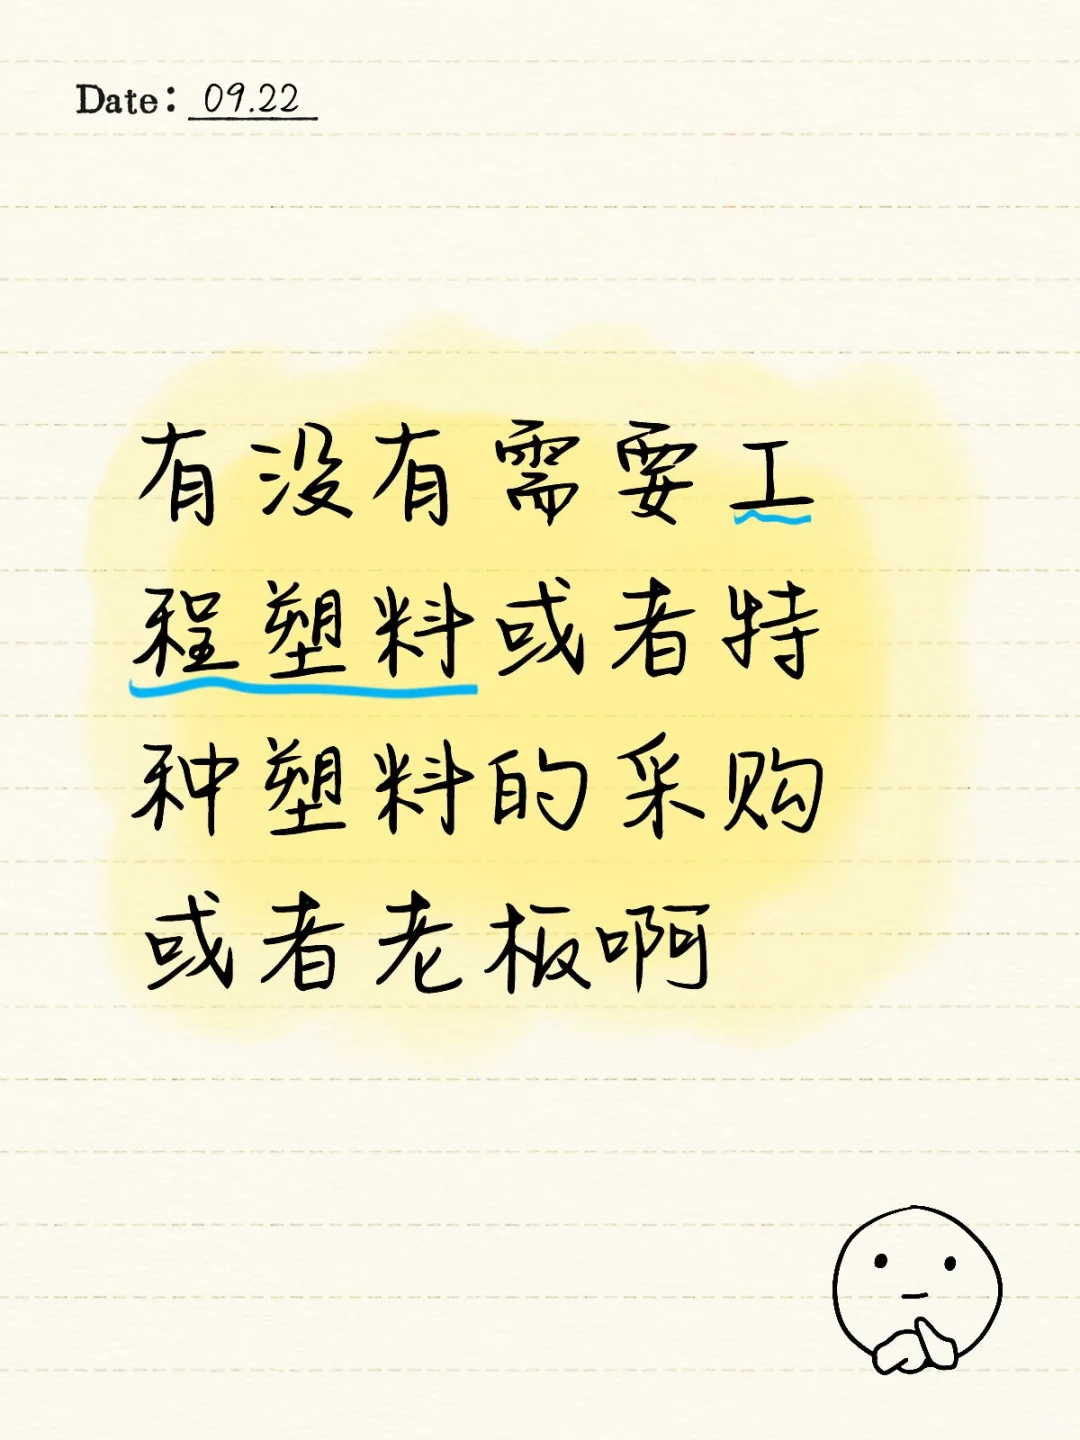 Date: 09.22
有没有需要工
程塑料或者特
种塑料的采购
或者老板啊